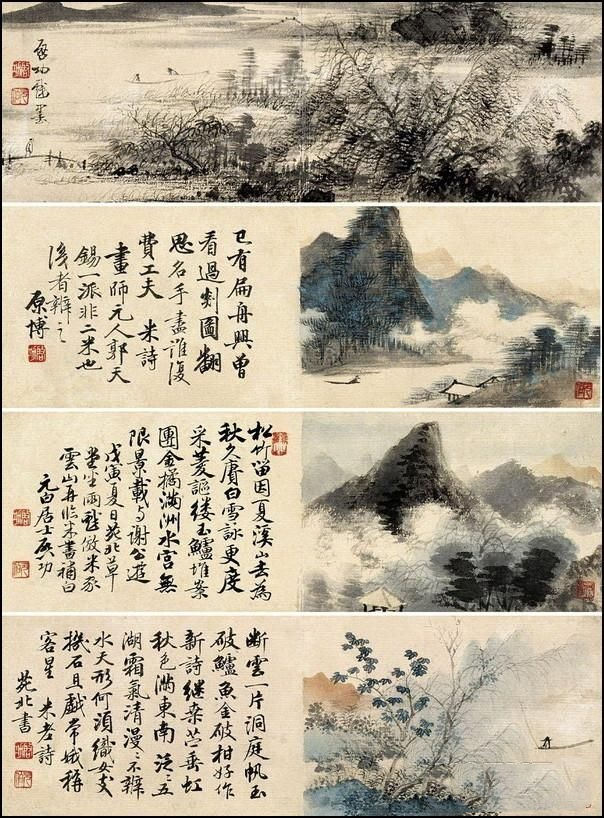 啓功戲墨
已有扁舟興曾
看過剡圖翻
思名手盡誰復
費工夫 米詩
畫師元人郭天
錫一派非二米也
後者辯之
原博
松竹留因夏溪山去為
秋久賡白雪詠更度
采菱謳縷玉鱸堆案
團金橘滿洲水宮無
限景載与謝公遊
戊寅夏日苑北草
堂坐雨戲倣米家
雲山再臨米書補白
元白居士啓功
斷雲一片洞庭帆玉
破鱸魚金破柑好作
新詩継桑苧垂虹
秋色滿東南泛〻五
湖霜氣清漫〻不辨
水天形何須織女支
機石且戲常娥稱
客星 米老詩
苑北書